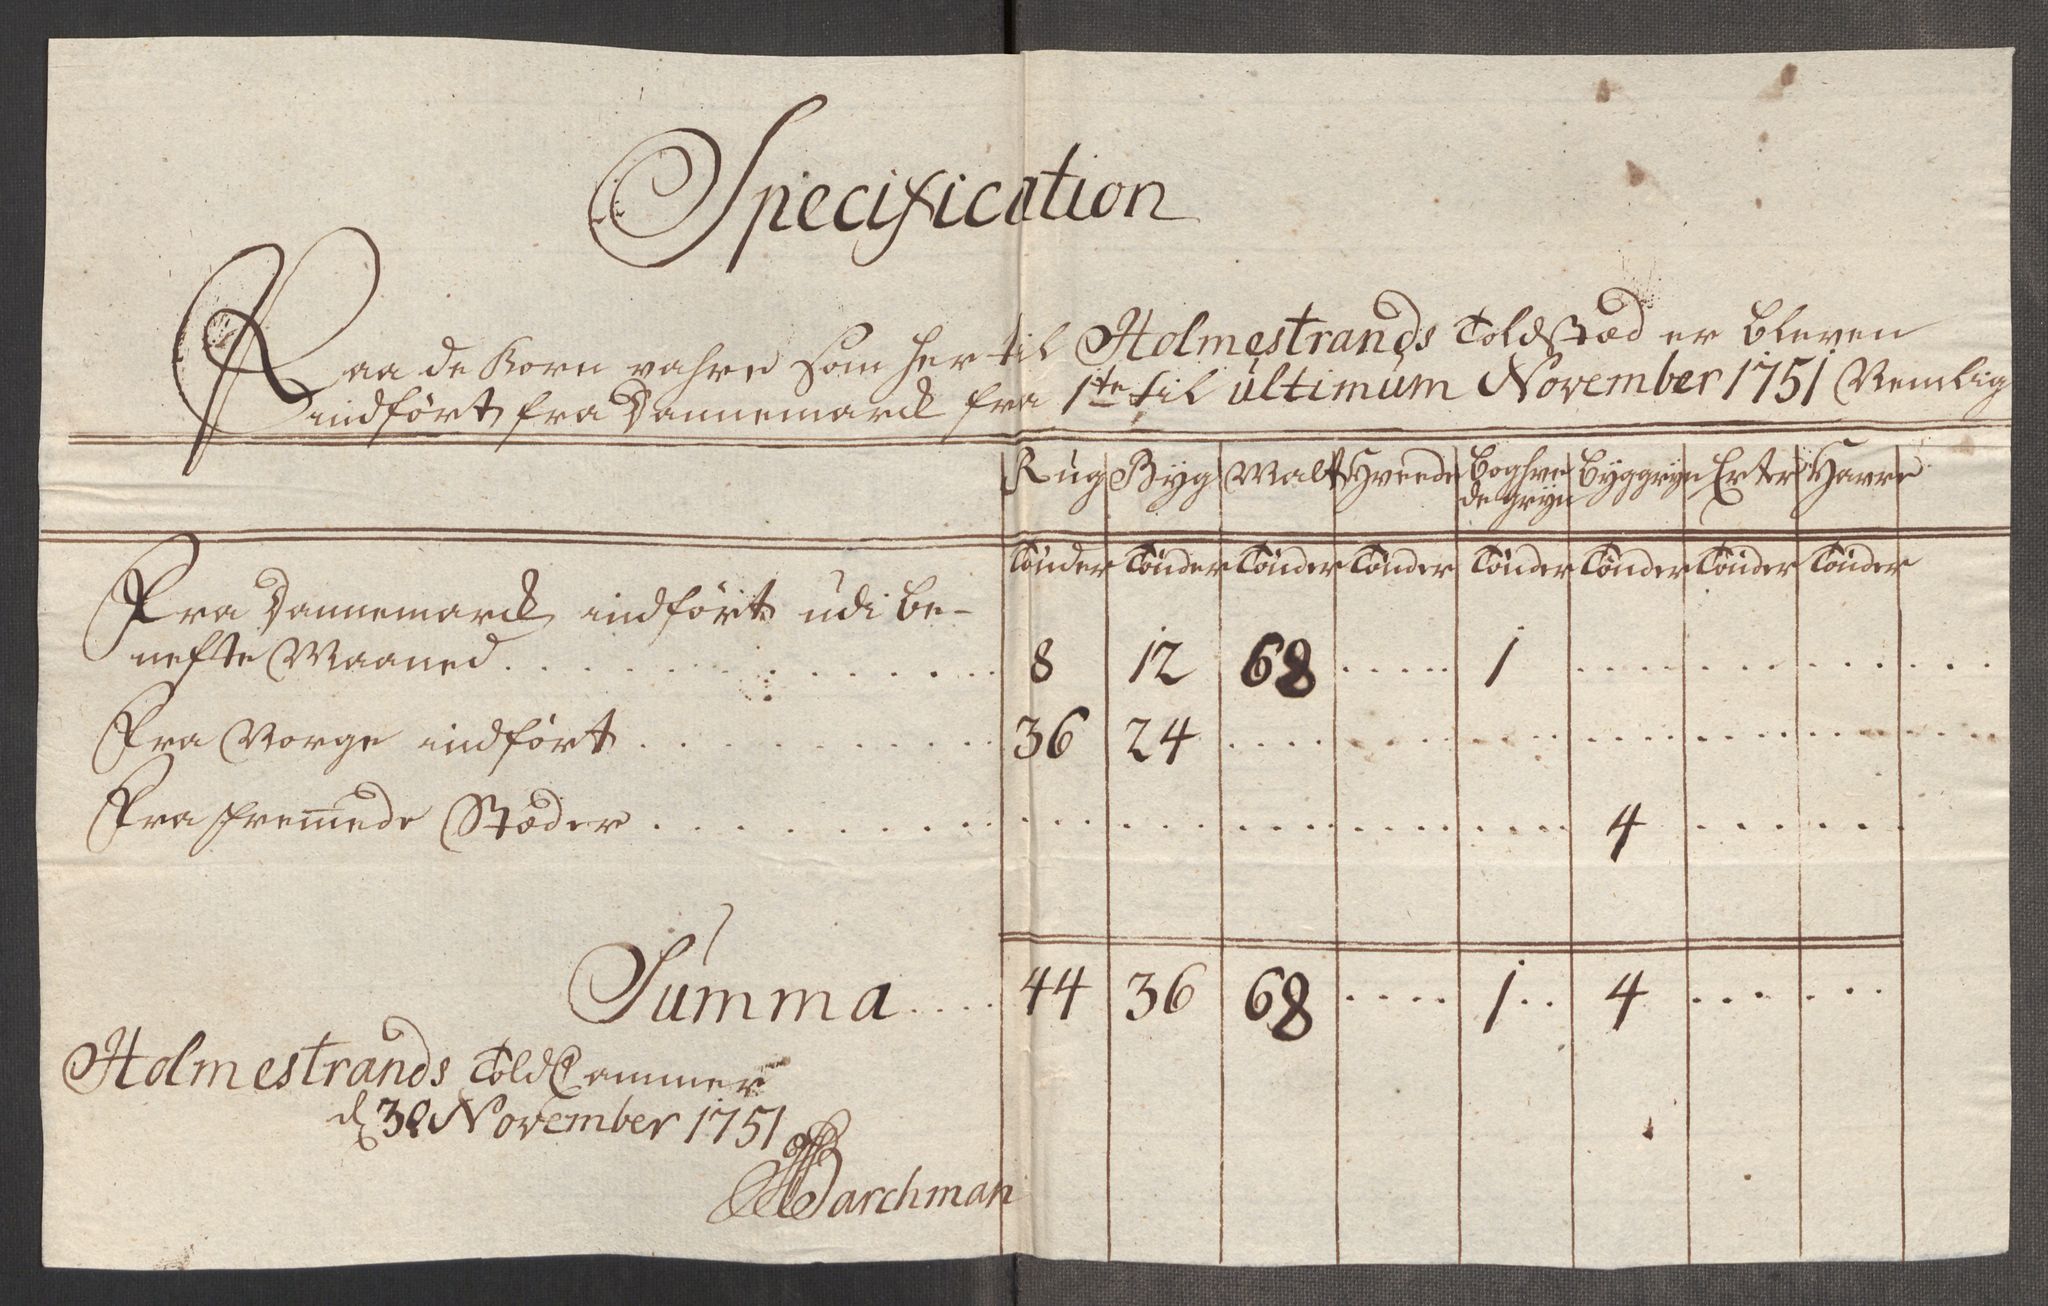 Specification
Paa de Korn vahre som her til Holmestrands Toldstæd er bleven
indført fra Dannemarck fra 1te til ultimum November 1751 Nemlig
Rug Byg Malt Hveede Boghve Byggryn Erter Havre
de gryn
Tønder Tønder Tønder Tønder Tønder Tønder Tønder Tønder
Fra Dannemarck indført udi be-
nefte Maaned . . . . . . . 8 12 68 ..... 1 . . . . . . . .
Fra Norge indført . . . . . . . 36 24 . . . . . . . . . .
Fra fremmede Stæder . . . . . . . . . . . . . . 4 . . . . . .
Summa .... 44 36 68 .... 1.. 4 ... ...
Holmestrands Told Cammer
d 30 November 1751
Barchman